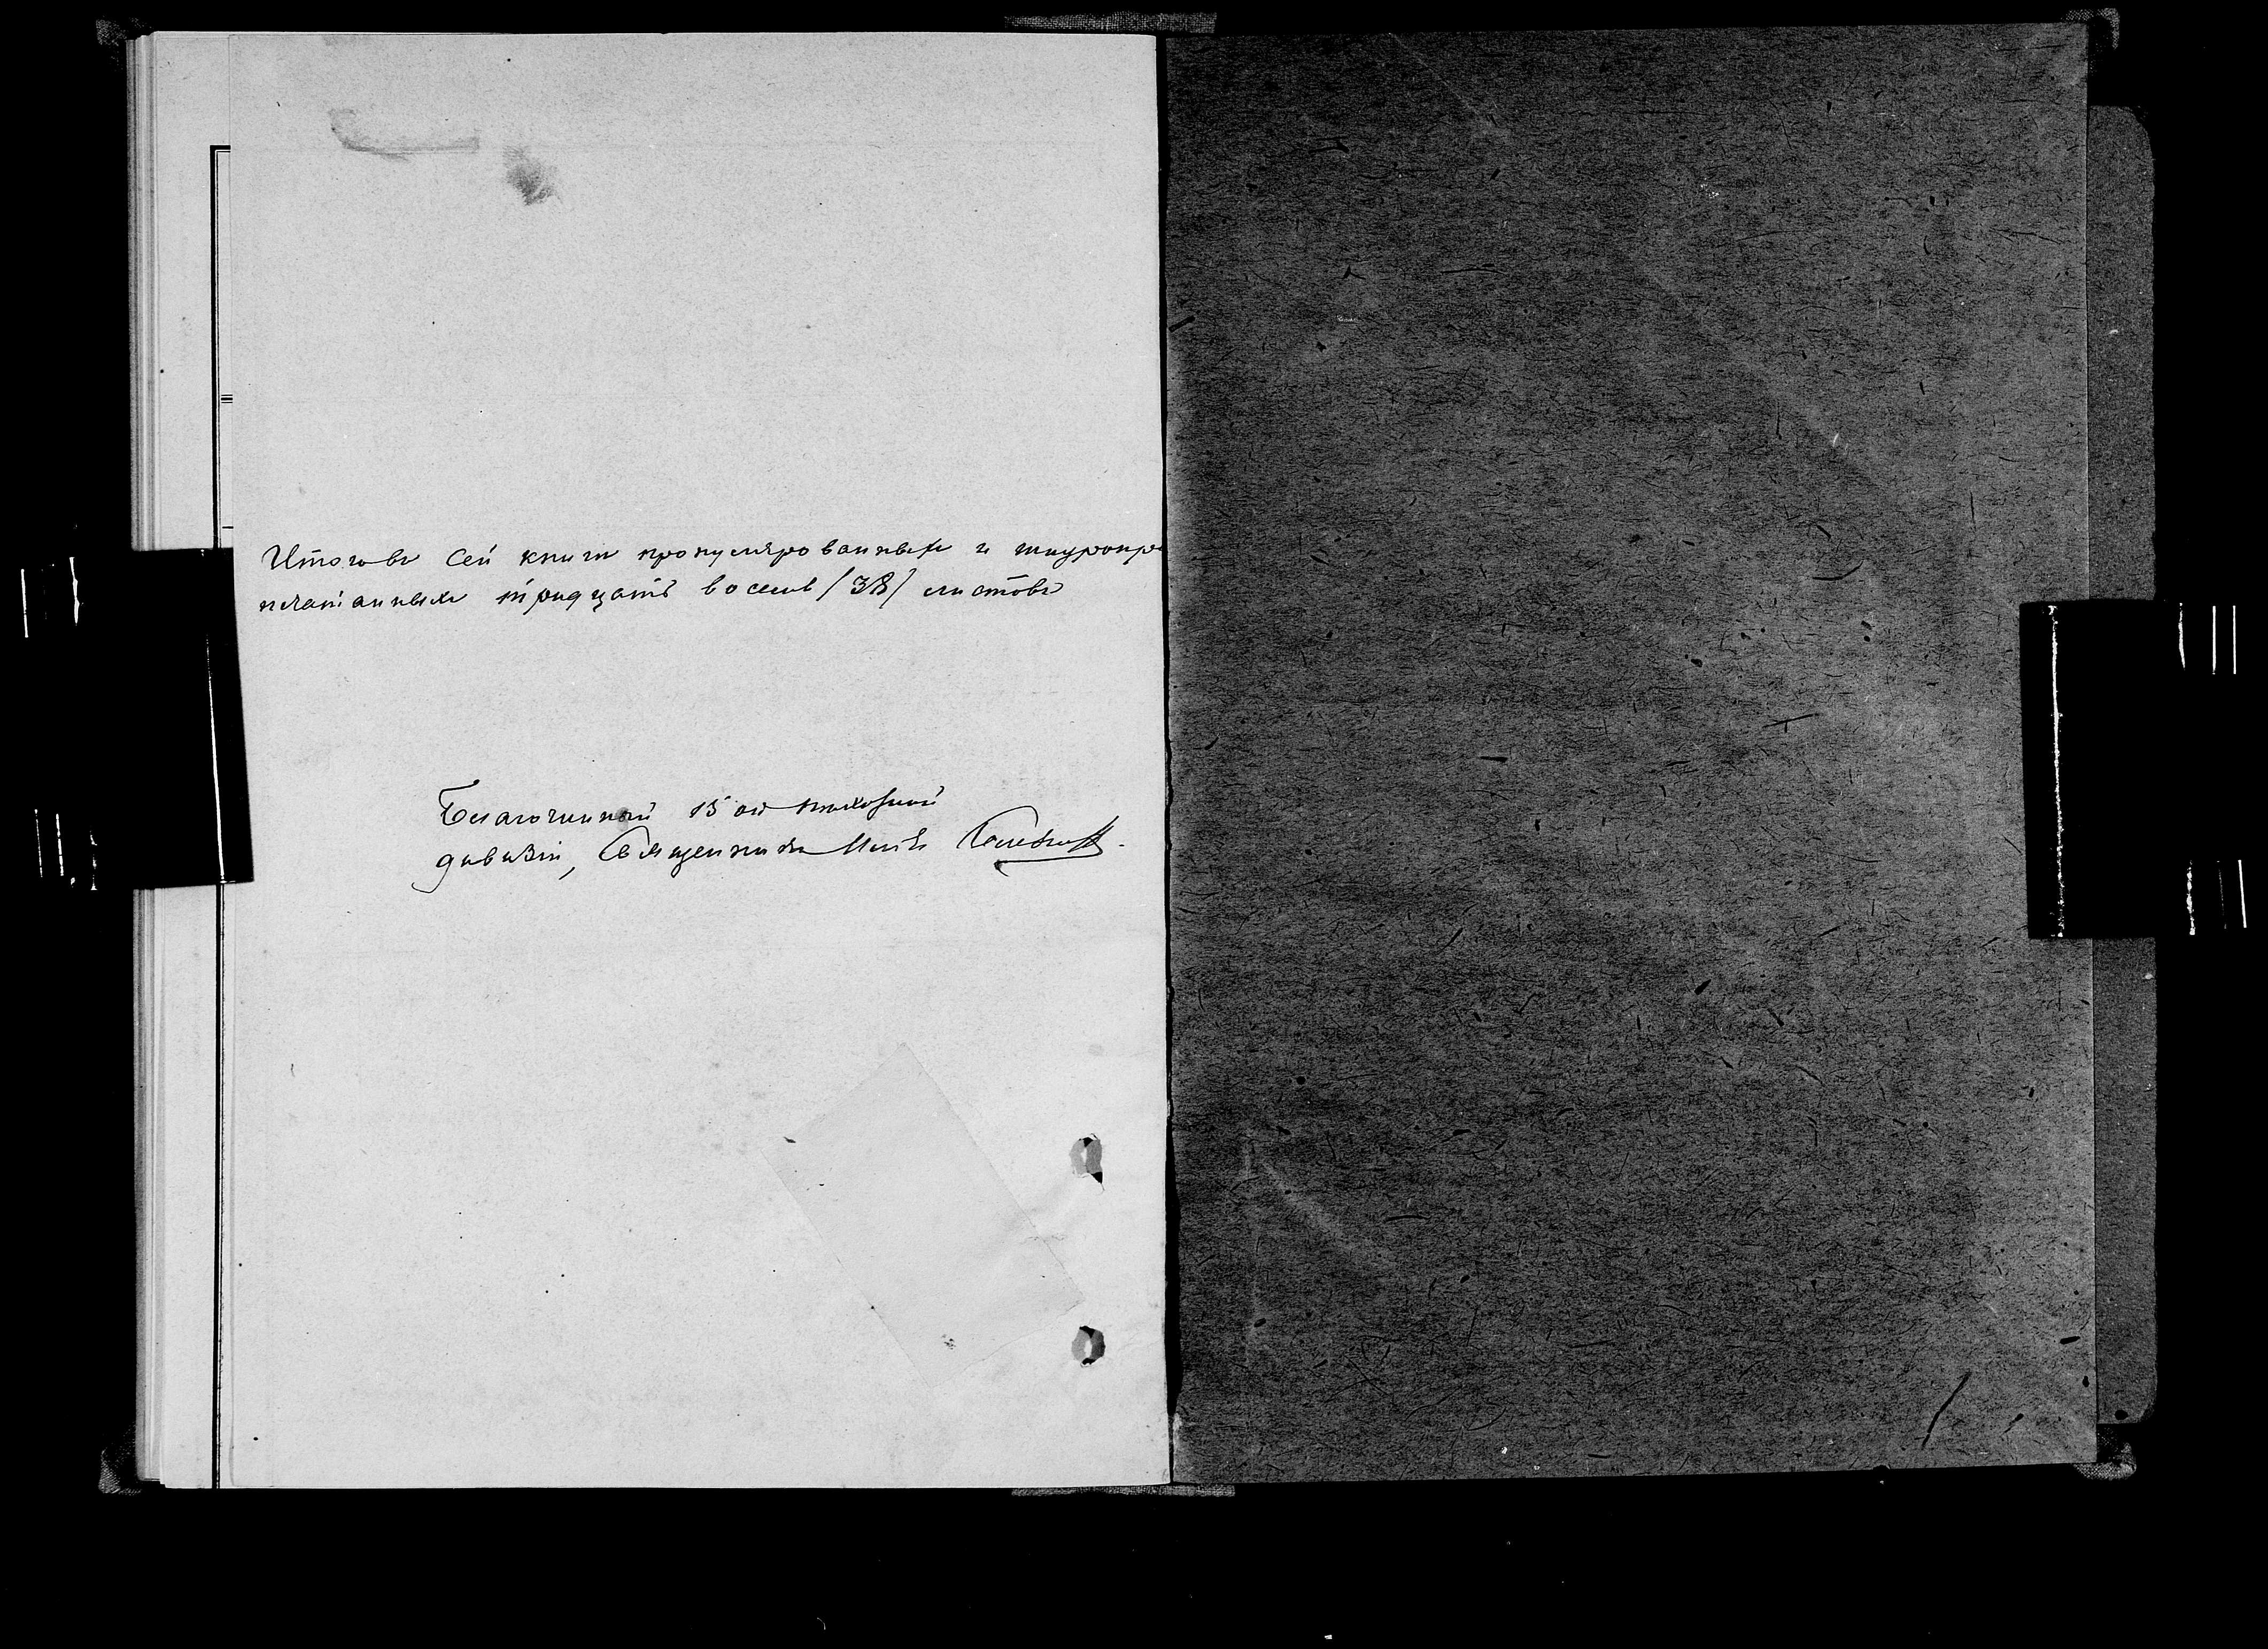 Итоговъ сей книги пронумерованныхъ и шнуропро
печатанныхъ тридцать восемь (38) листовъ
Благочинный 15 ой пѣхотной
дивизіи, Священникъ